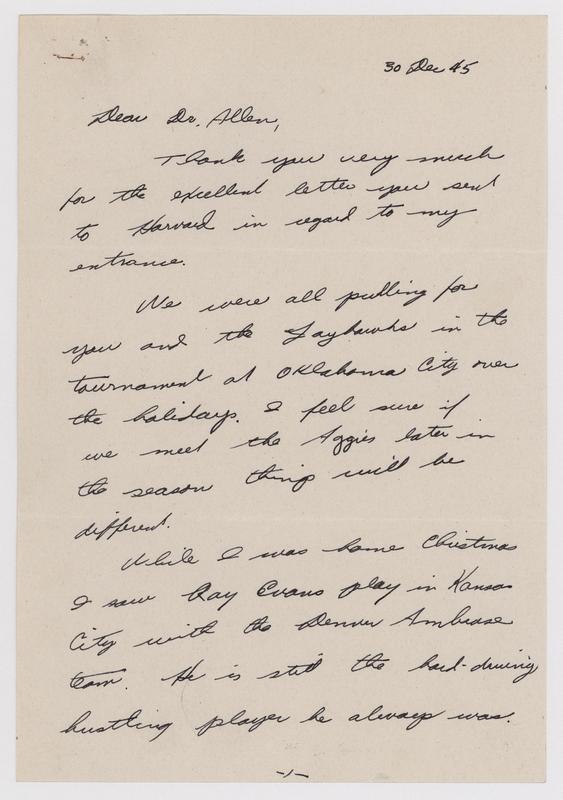 30 Dec 45
Dear Dr. Allen,
Thank you very much
for the excellent letter you sent
to Harvard in regard to my
entrance.
We were all pulling for
you and the Jayhawks in the
tournament at Oklahoma City over
the holidays. I feel sure if
we meet the Aggies later in
the season things will be
different.
While I was home Christmas
I saw Ray Evans play in Kansas
City with the Denver Ambrose
team. He is still the hard-driving
hustling player he always was.
-1-